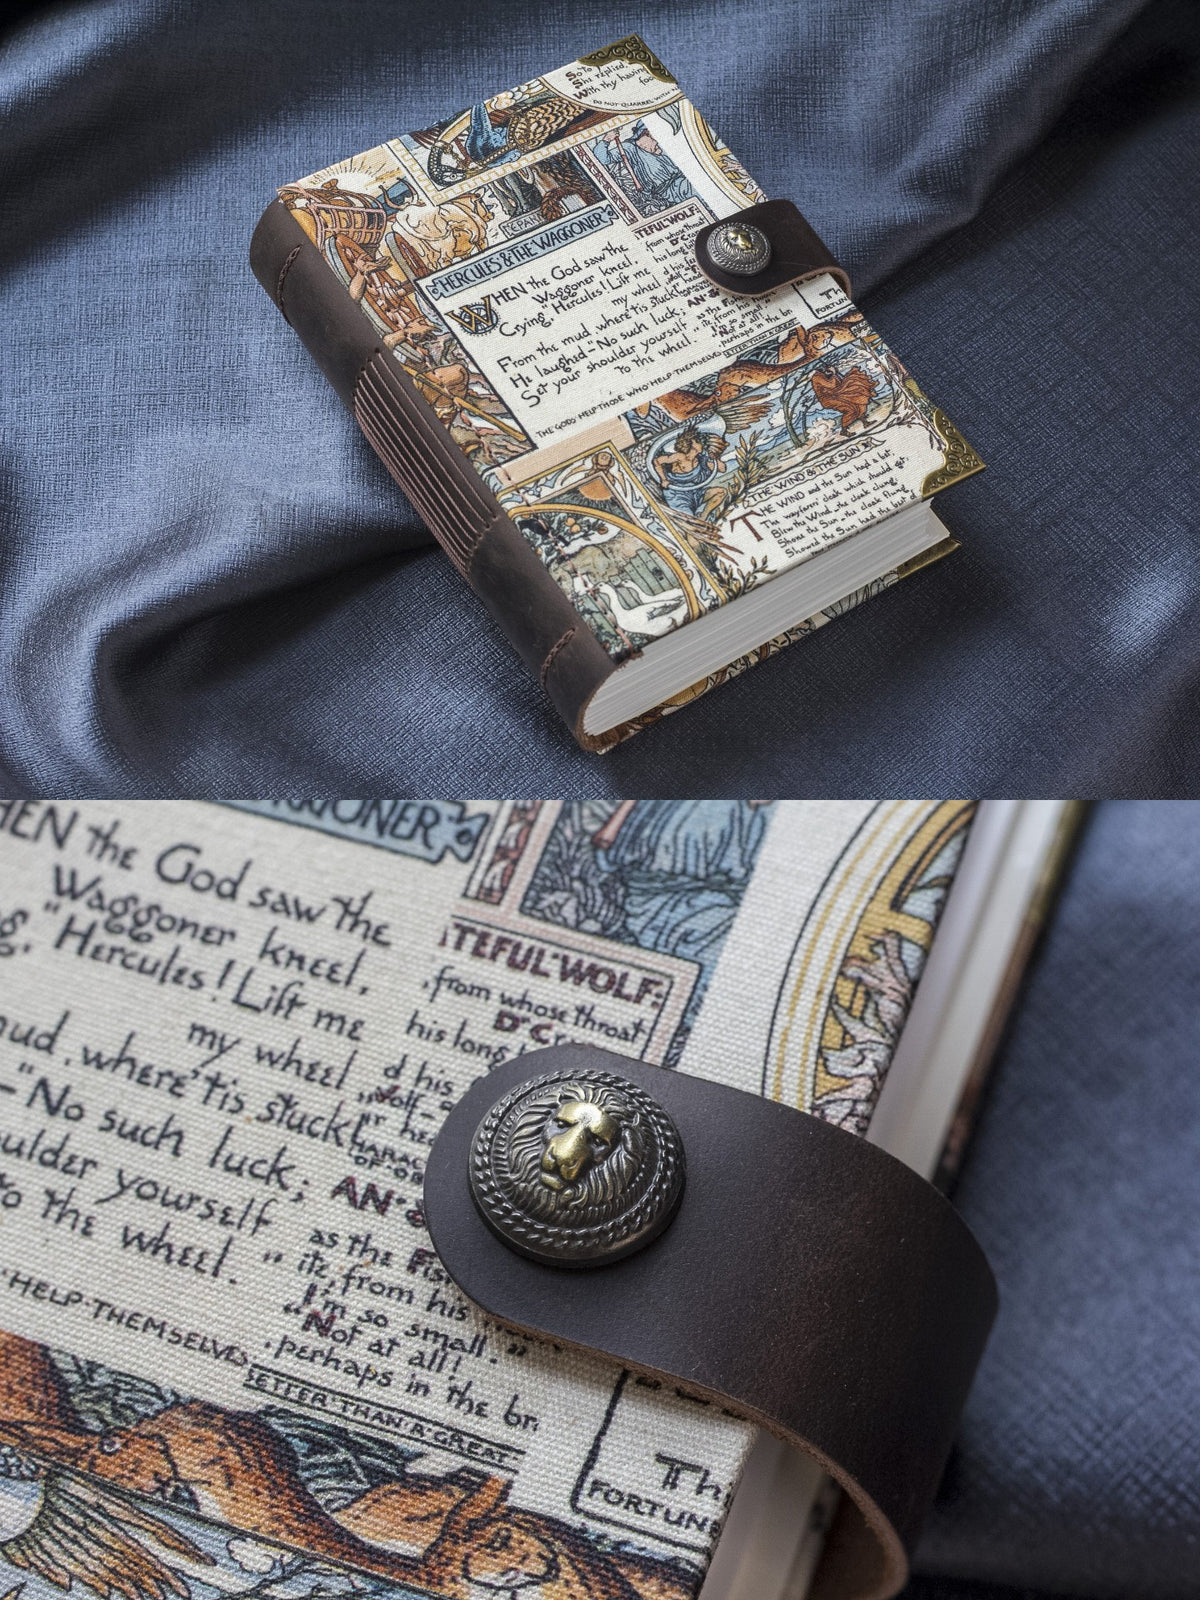 So To
She replied,
With thy having
foo
DO NOT QUARREL WITH
HERCULES & THE WAGGONER
WHEN the God saw the
Waggoner kneel,
Crying, "Hercules! Lift me
my wheel
From the mud, where 'tis stuck!
He laughed—"No such luck;
Set your shoulder yourself
To the wheel."
THE GODS HELP THOSE WHO HELP THEMSELVES
TEFUL WOLF:
from whose throat
his long
d his
AN
as the Fish
ite, from his
I'm so small
Not at all!
perhaps in the br
ETTER THAN A GREAT
Th
FORTUN
THE WIND & THE SUN
THE WIND and the Sun had a bet,
The wayfarers' cloak which should get:
Blew the Wind—the cloak clung:
Shone the Sun—the cloak flung
Showed the Sun had the best of
HEN the God saw the
Waggoner kneel,
g, "Hercules! Lift me
my wheel
mud, where 'tis stuck!
—"No such luck;
oulder yourself
To the wheel."
HELP THEMSELVES
TEFUL·WOLF:
from whose throat
Dr C
his long
d his
Wolf—
AN·&
as the Fish
ite, from his
"I'm so small."
"Not at all!"
perhaps in the br
ETTER·THAN·A·GREAT·
Thi
FORTUNE